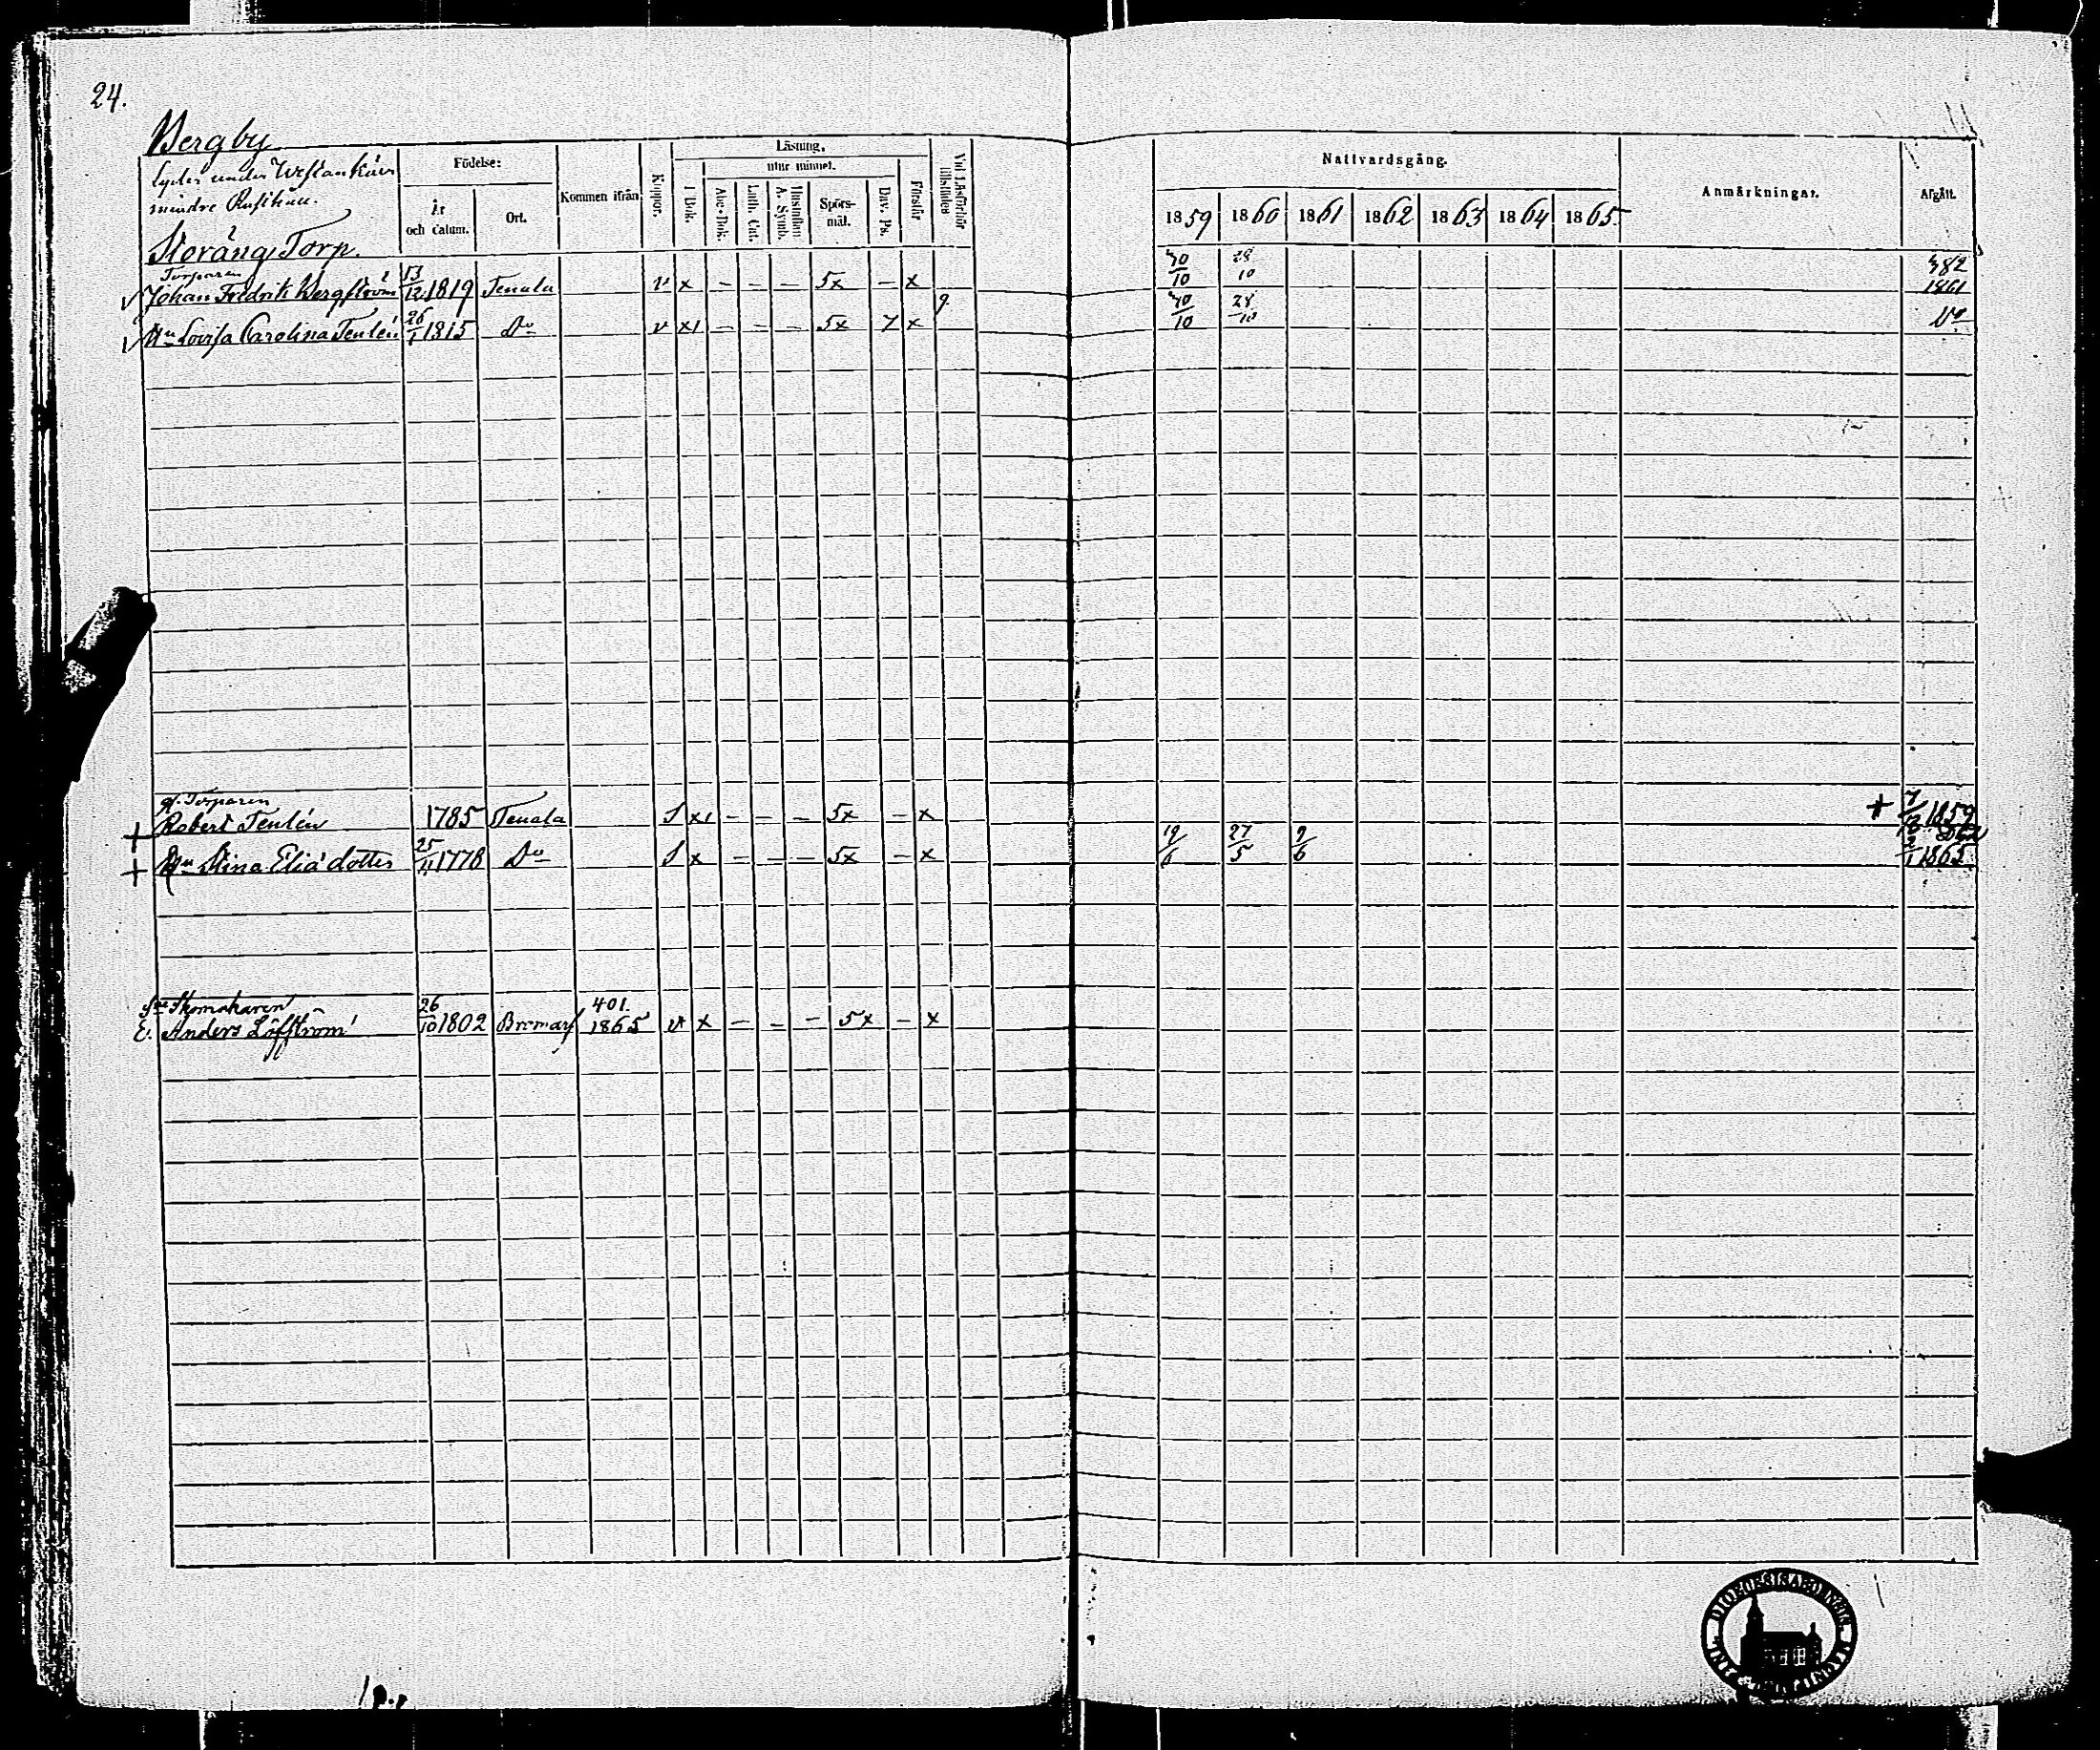 24.
Bergby
lyder under Westankärr
mindre Rusthåll.
Storäng Torp.
Födelse:
År och datum.
Ort.
Kommen ifrån
Koppor.
Läsning,
I Bok.
utur minnet.
Abc-Bok.
Luth. Cat.
Hustaflan A. Symb.
Spörs-mål.
Dav. Ps.
Förstår
Vid Läsförhör tillstädes
Nattvardsgång.
1859 1860 1861 1862 1863 1864 1865
Anmärkningar.
Afgått.
Torparen
√ Johan Fredrik Bergström 13/12 1819 Tenala v x – – – 5x – x 30/10 28/10 382 1861
√ Hu Lovisa Carolina Tenlén 26/1 1815 Do v x1 – – – 5x 7 x 9. 30/10 28/10 Do
gl. Torparen
+ Robert Tenlén 1785 Tenala S x1 – – – 5x – x + 7/12 1859
+ Hu Stina Eliä dotter 25/11 1778 Do S x – – – 5x – x 19/6 27/5 9/6 död 2/1 1865
Skomakaren
E. Anders Löfström 26/10 1802 Bromarf 401. 1865 v x – – – 5x – x